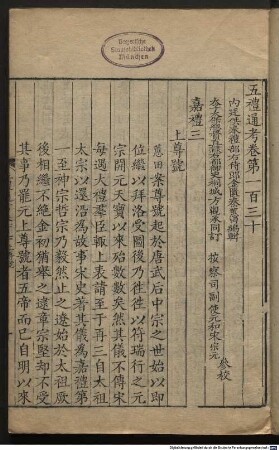 五禮通考卷第一百三十
内廷供奉禮部右侍郎金匱秦蕙田編輯
按察司副使元和宋宗元
參校
嘉禮三
上尊號
蕙田案尊號起於唐武后中宗之世始以即
位繼以拜洛受圖後乃徃徃以符瑞行之元
宗開元天寶以來殆數數矣然其儀不傳宋
每遇大禮羣臣輒上表請至于再三自太祖
太宗以還沿為故事宋史著其儀為嘉禮第
一至神宗哲宗乃毅然止之遼始於太祖厥
後相繼不絶金初猶舉之逮章宗堅却不受
其事乃罷元上尊號者五帝而已自明以來
Bayerische
Staatsbibliothek
München